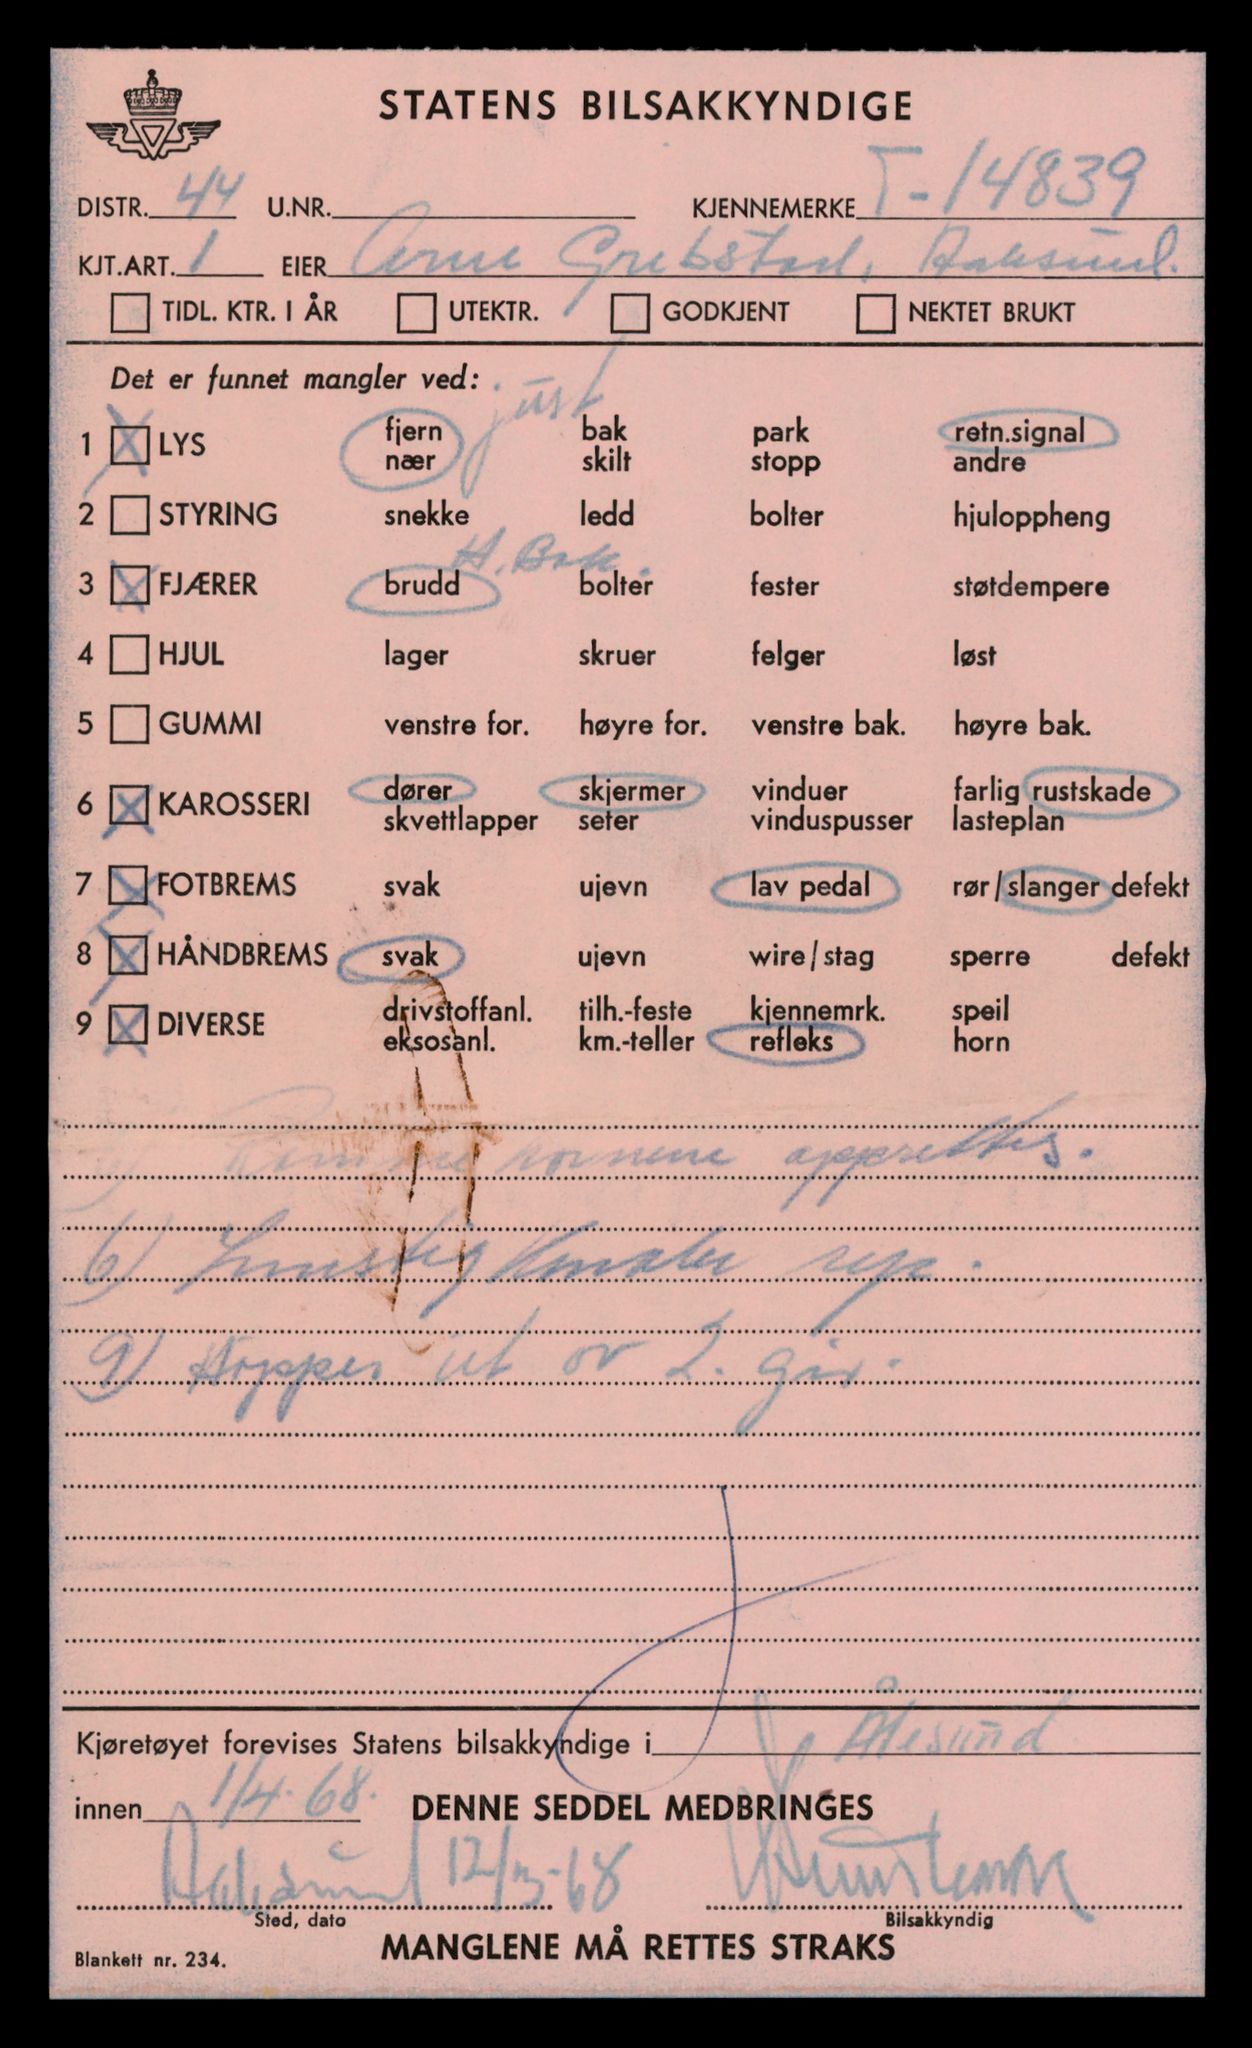 STATENS BILSAKKYNDIGE
DISTR. 44 U.NR. KJENNEMERKE T-14839
KJT.ART. 1 EIER Arne Grebstad, Aalesund.
TIDL. KTR. I ÅR UTEKTR. GODKJENT NEKTET BRUKT
Det er funnet mangler ved:
just
1 LYS fjern bak park retn.signal
nær skilt stopp andre
2 STYRING snekke ledd bolter hjuloppheng
H. Bak.
3 FJÆRER brudd bolter fester støtdempere
4 HJUL lager skruer felger løst
5 GUMMI venstre for. høyre for. venstre bak. høyre bak.
6 KAROSSERI dører skjermer vinduer farlig rustskade
skvettlapper seter vinduspusser lasteplan
7 FOTBREMS svak ujevn lav pedal rør/slanger defekt
8 HÅNDBREMS svak ujevn wire/stag sperre defekt
9 DIVERSE drivstoffanl. tilh.-feste kjennemrk. speil
eksosanl. km.-teller refleks horn
opprettes.
6) rep.
9) Hopper ut av 2. gir.
Kjøretøyet forevises Statens bilsakkyndige i Ålesund
innen 1/4-68. DENNE SEDDEL MEDBRINGES
Aalesund 12/3-68
Sted, dato Bilsakkyndig
Blankett nr. 234. MANGLENE MÅ RETTES STRAKS